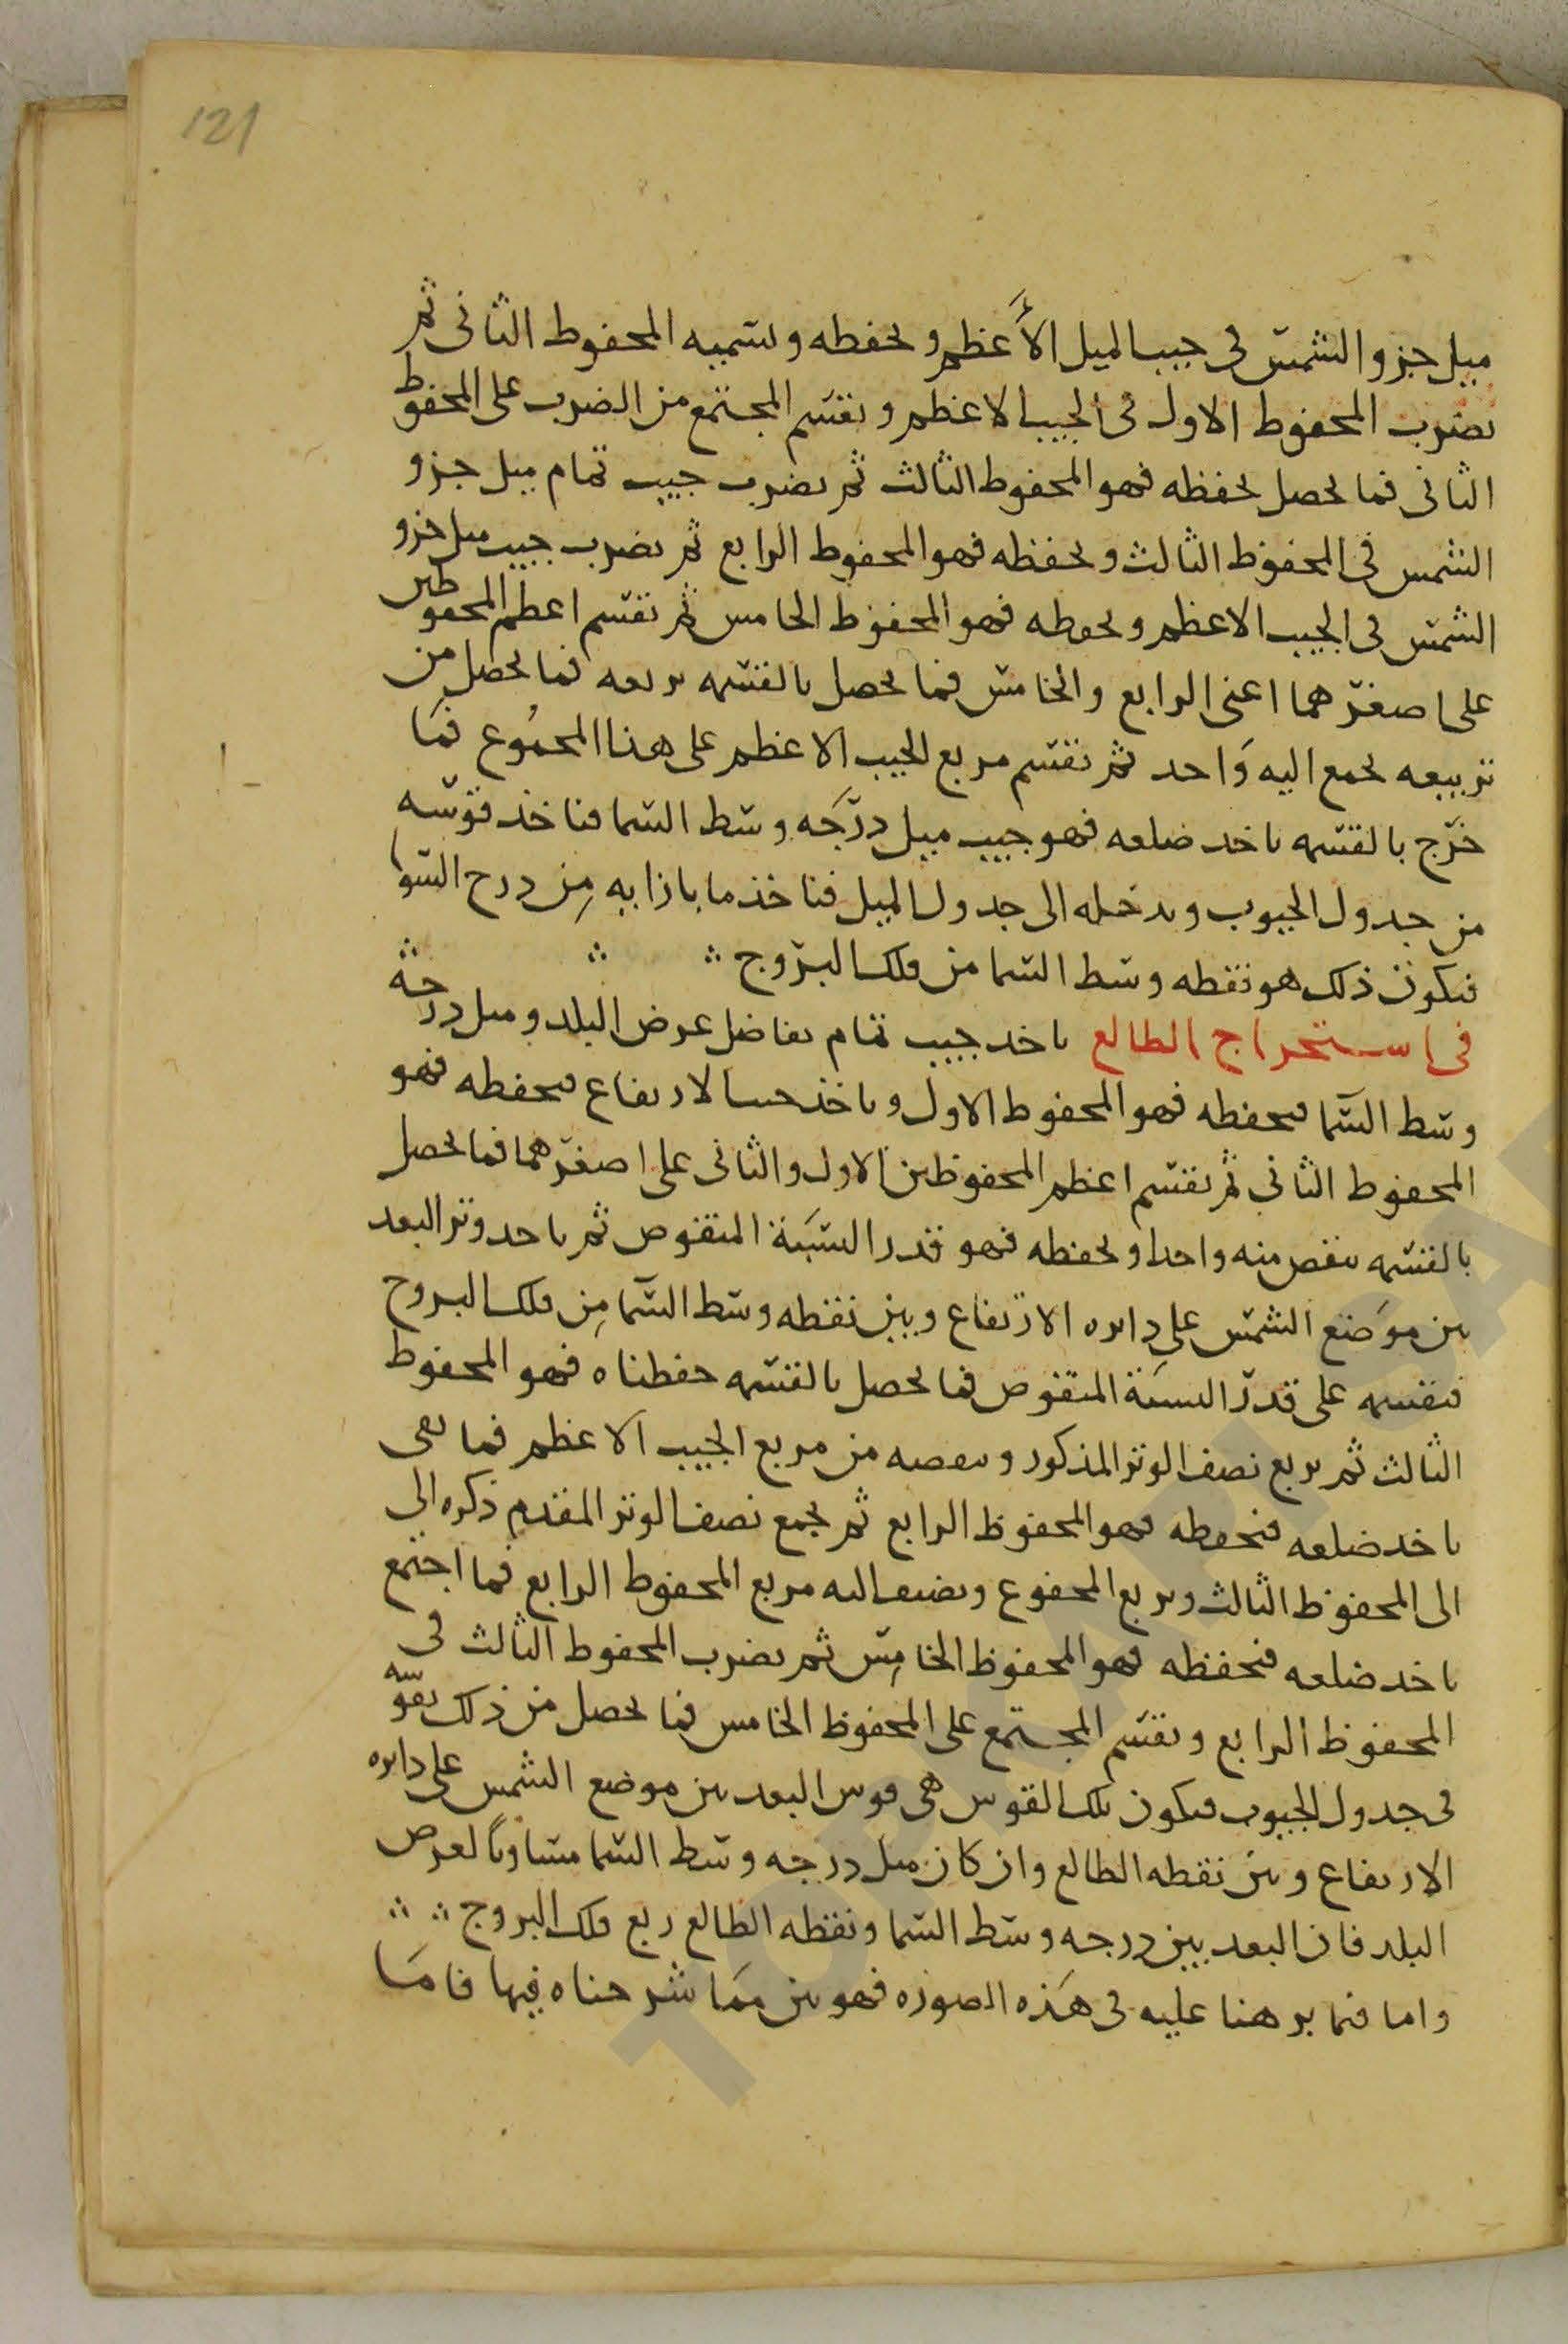 121
ميل جزو الشمس فى جيب الميل الأعظم ونحفظه ونسميه المحفوظ الثانى ثم
نضرب المحفوظ الاول فى الجيب الاعظم ونقسم المجتمع من الضرب على المحفوظ
الثانى فما يحصل نحفظه فهو المحفوظ الثالث ثم نضرب جيب تمام ميل جزو
الشمس فى المحفوظ الثالث ونحفظه فهو المحفوظ الرابع ثم نضرب جيب ميل جزو
الشمس فى الجيب الاعظم ونحفظه فهو المحفوظ الخامس ثم نقسم اعظم المحفوظين
على اصغرهما اعنى الرابع والخامس فما يحصل بالقسمه نربعه فما يحصل من
تربيعه نجمع اليه واحد ثم نقسم مربع الجيب الاعظم على هذا المجموع فما
خرج بالقسمه ناخذ ضلعه فهو جيب ميل درجه وسط السما فناخذ قوسه
من جدول الجيوب وندخله الى جدول الميل فناخذ ما بازايه من درج السوا
فيكون ذلك هو نقطه وسط السما من فلك البروج
فى استخراج الطالع ناخذ جيب تمام تفاضل عرض البلد وميل درجة
وسط السما فنحفظه فهو المحفوظ الاول وناخذ جيب الارتفاع فنحفظه فهو
المحفوظ الثانى ثم نقسم اعظم المحفوظين الاول والثانى على اصغرهما فما يحصل
بالقسمه ننقص منه واحدا ونحفظه فهو قدر النسبة المنقوص ثم ناخذ وتر البعد
بين موضع الشمس على دايره الارتفاع وبين نقطه وسط السما من فلك البروج
فنقسمه على قدر النسبة المنقوص فما يحصل بالقسمه حفظناه فهو المحفوظ
الثالث ثم نربع نصف الوتر المذكور وننقصه من مربع الجيب الاعظم فما بقى
ناخذ ضلعه فنحفظه فهو المحفوظ الرابع ثم نجمع نصف الوتر المقدم ذكره الى
الى المحفوظ الثالث ونربع المحفوع ونضيف اليه مربع المحفوظ الرابع فما اجتمع
ناخذ ضلعه فنحفظه فهو المحفوظ الخامس ثم نضرب المحفوظ الثالث فى
المحفوظ الرابع ونقسم المجتمع على المحفوظ الخامس فما يحصل من ذلك نقوسه
فى جدول الجيوب فيكون تلك القوس هى قوس البعد بين موضع الشمس على دايره
الارتفاع وبين نقطه الطالع وان كان ميل درجه وسط السما مساويا لعرض
البلد فان البعد بين درجه وسط السما ونقطه الطالع ربع فلك البروج
واما فيما برهنا عليه فى هذه الصوره فهو بين مما شرحناه فيها فاما